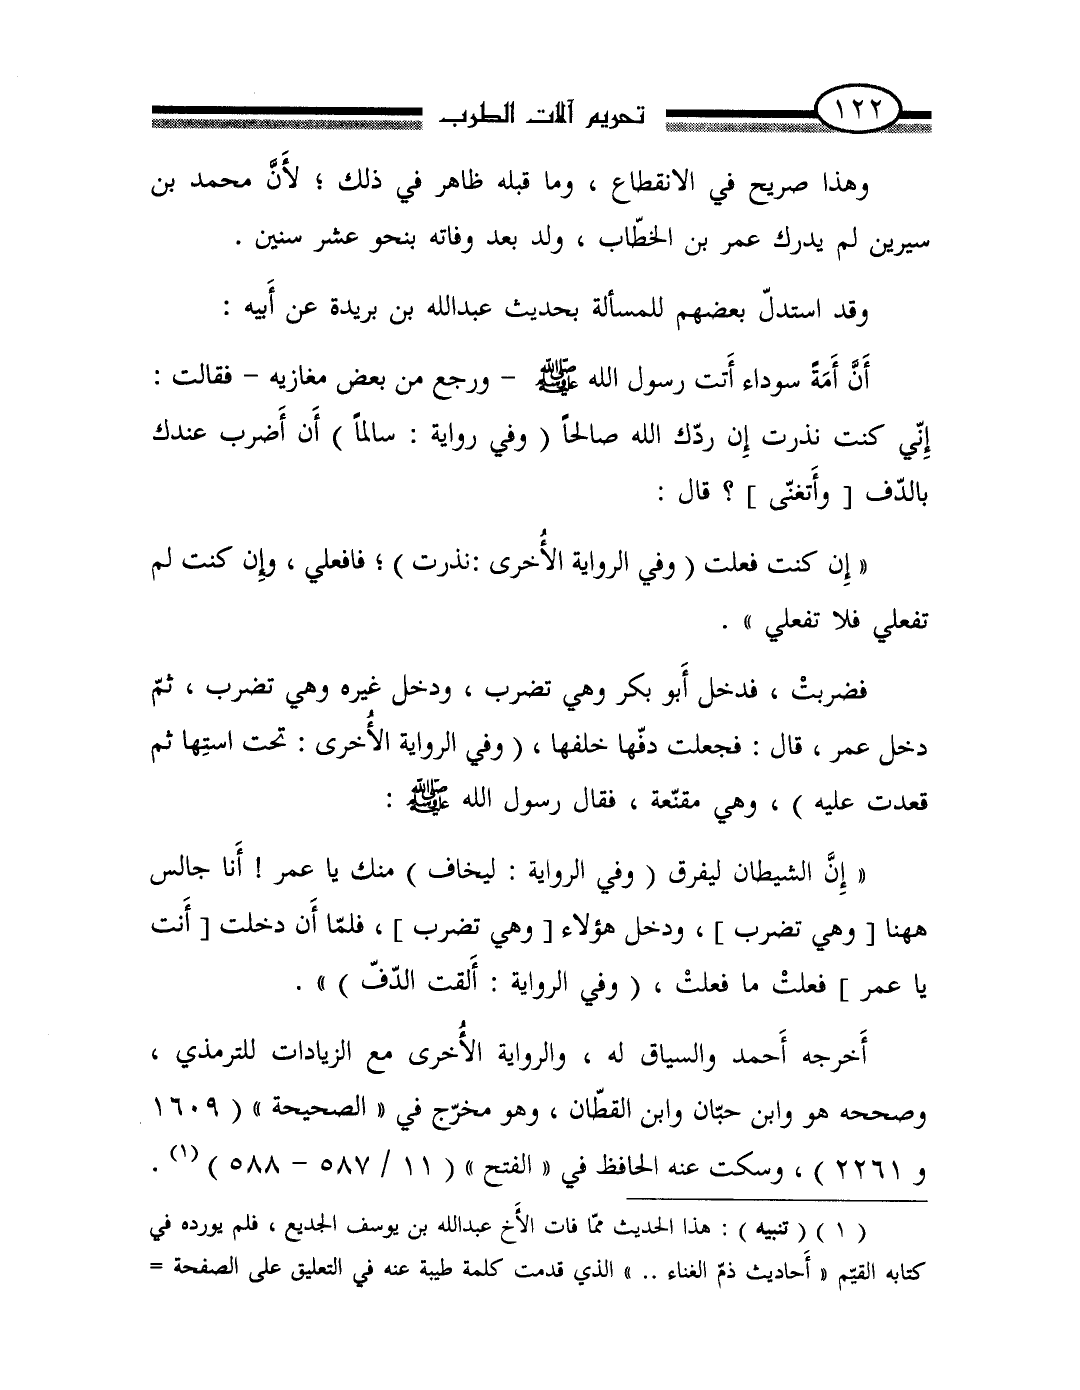 ١٢٢
تحريم آلات الطرب
وهذا صريح في الانقطاع ، وما قبله ظاهر في ذلك ؛ لأَنَّ محمد بن
سيرين لم يدرك عمر بن الخطّاب ، ولد بعد وفاته بنحو عشر سنين .
وقد استدلّ بعضهم للمسألة بحديث عبدالله بن بريدة عن أَبيه :
أَنَّ أَمَةً سوداء أَتت رسول الله ﷺ - ورجع من بعض مغازيه - فقالت :
إِنّي كنت نذرت إِن ردّك الله صالحاً ( وفي رواية : سالماً ) أَن أَضرب عندك
بالدّف [ وأَتغنّى ] ؟ قال :
« إِن كنت فعلت ( وفي الرواية الأُخرى :نذرت ) ؛ فافعلي ، وإِن كنت لم
تفعلي فلا تفعلي » .
فضربتْ ، فدخل أَبو بكر وهي تضرب ، ودخل غيره وهي تضرب ، ثمّ
دخل عمر ، قال : فجعلت دفّها خلفها ، ( وفي الرواية الأُخرى : تحت استِها ثم
قعدت عليه ) ، وهي مقنّعة ، فقال رسول الله ﷺ :
« إِنَّ الشيطان ليفرق ( وفي الرواية : ليخاف ) منك يا عمر ! أَنا جالس
ههنا [ وهي تضرب ] ، ودخل هؤلاء [ وهي تضرب ] ، فلمّا أَن دخلت [ أَنت
يا عمر ] فعلتْ ما فعلتْ ، ( وفي الرواية : أَلقت الدّفّ ) » .
أَخرجه أَحمد والسياق له ، والرواية الأُخرى مع الزيادات للترمذي ،
وصححه هو وابن حبّان وابن القطّان ، وهو مخرّج في « الصحيحة » ( ١٦٠٩
و ٢٢٦١ ) ، وسكت عنه الحافظ في « الفتح » ( ١١ / ٥٨٧ - ٥٨٨ ) (١) .
( ١ ) ( تنبيه ) : هذا الحديث ممّا فات الأَخ عبدالله بن يوسف الجديع ، فلم يورده في
كتابه القيّم « أَحاديث ذمّ الغناء .. » الذي قدمت كلمة طيبة عنه في التعليق على الصفحة =